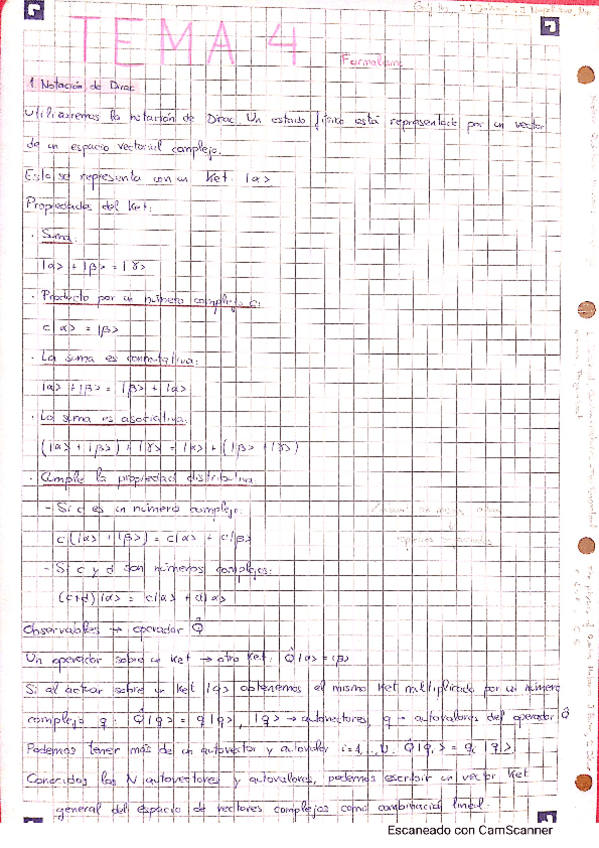 TEMA 4
Formalismo
1 Notación de Dirac
Utilizaremos la notación de Dirac. Un estado físico está representado por un vector
de un espacio vectorial complejo.
Esta se representa con un Ket |α>
Propiedades del Ket:
· Suma:
|α> + |β> = |γ>
· Producto por un número complejo c:
c|α> = |β>
· La suma es conmutativa:
|α> + |β> = |β> + |α>
· La suma es asociativa:
(|α> + |β>) + |γ> = |α> + (|β> + |γ>)
· Cumple la propiedad distributiva:
- Si c es un número complejo:
c(|α> + |β>) = c|α> + c|β>
- Si c y d son números complejos:
(c+d)|α> = c|α> + d|α>
Observables → operador Q̂
Un operador sobre un Ket → otro Ket: Q̂|α> = |β>
Si al actuar sobre un Ket |q> obtenemos el mismo Ket multiplicado por un número
complejo q: Q̂|q> = q|q>, |q> → autovectores, q → autovalores del operador Q̂
Podemos tener más de un autovector y autovalor i=1,..,N: Q̂|qᵢ> = qᵢ|qᵢ>
Conocidos los N autovectores y autovalores, podemos escribir un vector Ket
general del espacio de vectores complejos como combinación lineal.
Escaneado con CamScanner